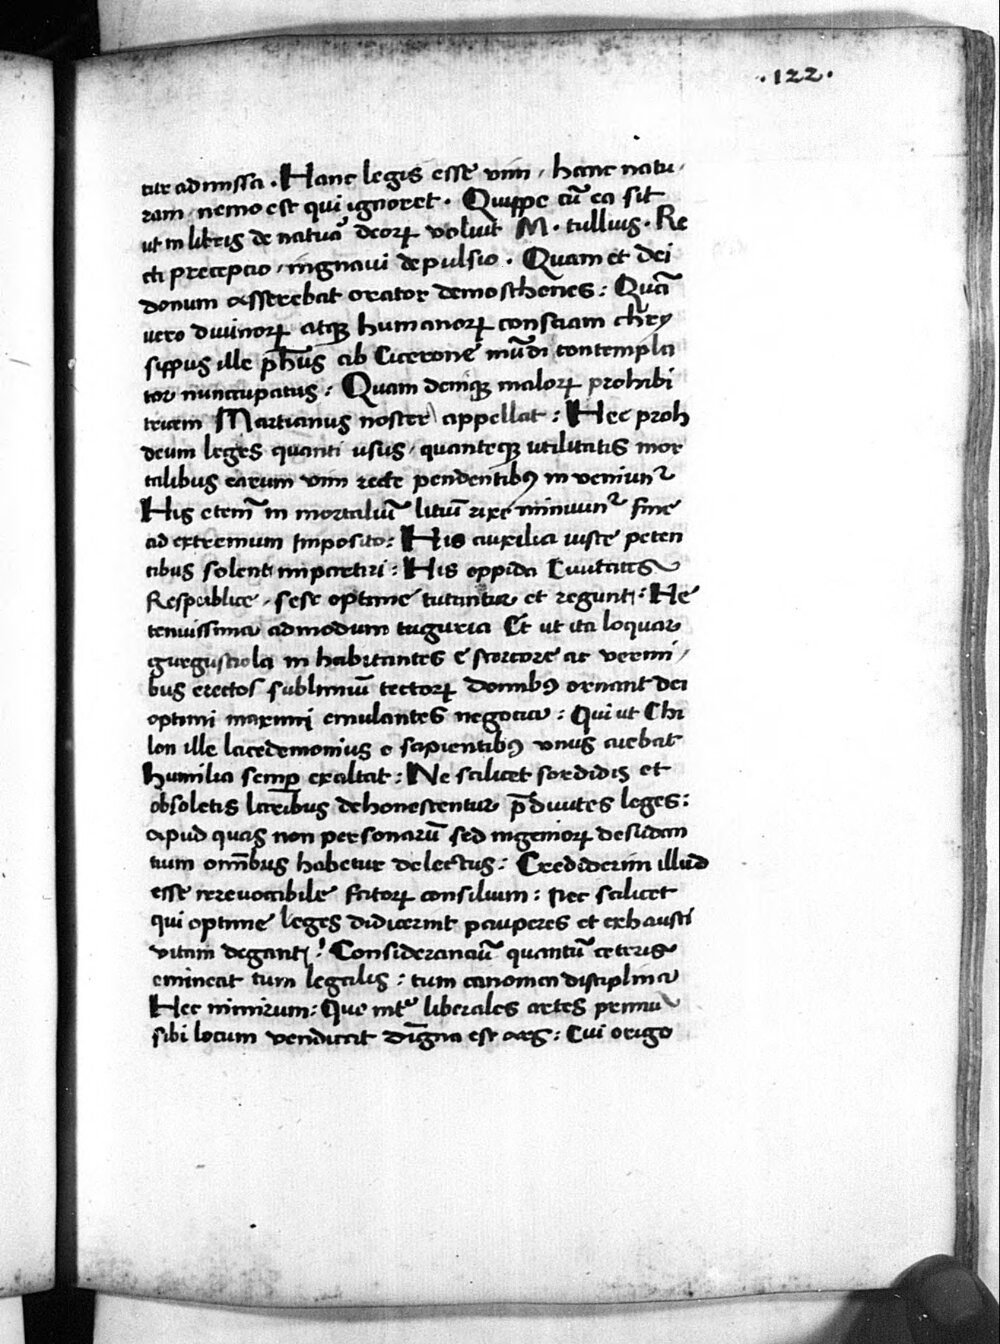 .122.
tur admissa . Hanc legis esse vim / hanc natu/
ram / nemo est qui ignoret . Quippe cū ea sit
ut in libris de natura deorꝝ voluit M . tullius . Re
cti preceptio / in gnaui depulsio . Quam et dei
donum asserebat orator demosthenes : Quā
uero diuinorꝝ atqꝫ humanorꝝ consciam chry
sippus ille ph̄us ab Cicerone mūdi contempla
tor nuncupatus : Quam deniqꝫ malorꝝ prohibi
tricem Martianus noster appellat : Hec proh
deum leges quanti usus / quanteqꝫ utilitatis mor
talibus earum vim recte pendentibꝰ in veniunt᷑
His etem̄ in mortaliū litiū rixe minuunt᷑ fine
ad extremum Imposito : His auxilia iuste peten
tibus solent impertiri : His oppida Ciuitates
Respublice / sese optime tutantur et regunt : He
tenuissima admodum tuguria Et ut ita loquar
gurgustiola in habitantes e stercore ac vermi/
bus erectos sublimiū tectorꝝ domibꝰ ornant dei
optimi maximi emulantes negocia : Qui ut Chi
lon ille lacedemonius e sapientibꝰ vnus aiebat
humilia semꝑ exaltat : Ne scilicet sordidis et
obsoletis laribus dehonestentur p̄diuites leges :
apud quas non personarū sed ingeniorꝝ desudan
tium om̄ibus habetur delectus : Crediderim illud
esse irreuocabile fatorꝝ consilium : Nec scilicet
qui optime leges didicerint pauperes et exhausti
vitam degant : Consideranti quantū ceteris
emineat tum legalis : tum canonica disciplina
Hec nimirum : Que int᷑ liberales artes primū
sibi locum vendicat digna est ars : Cui origo